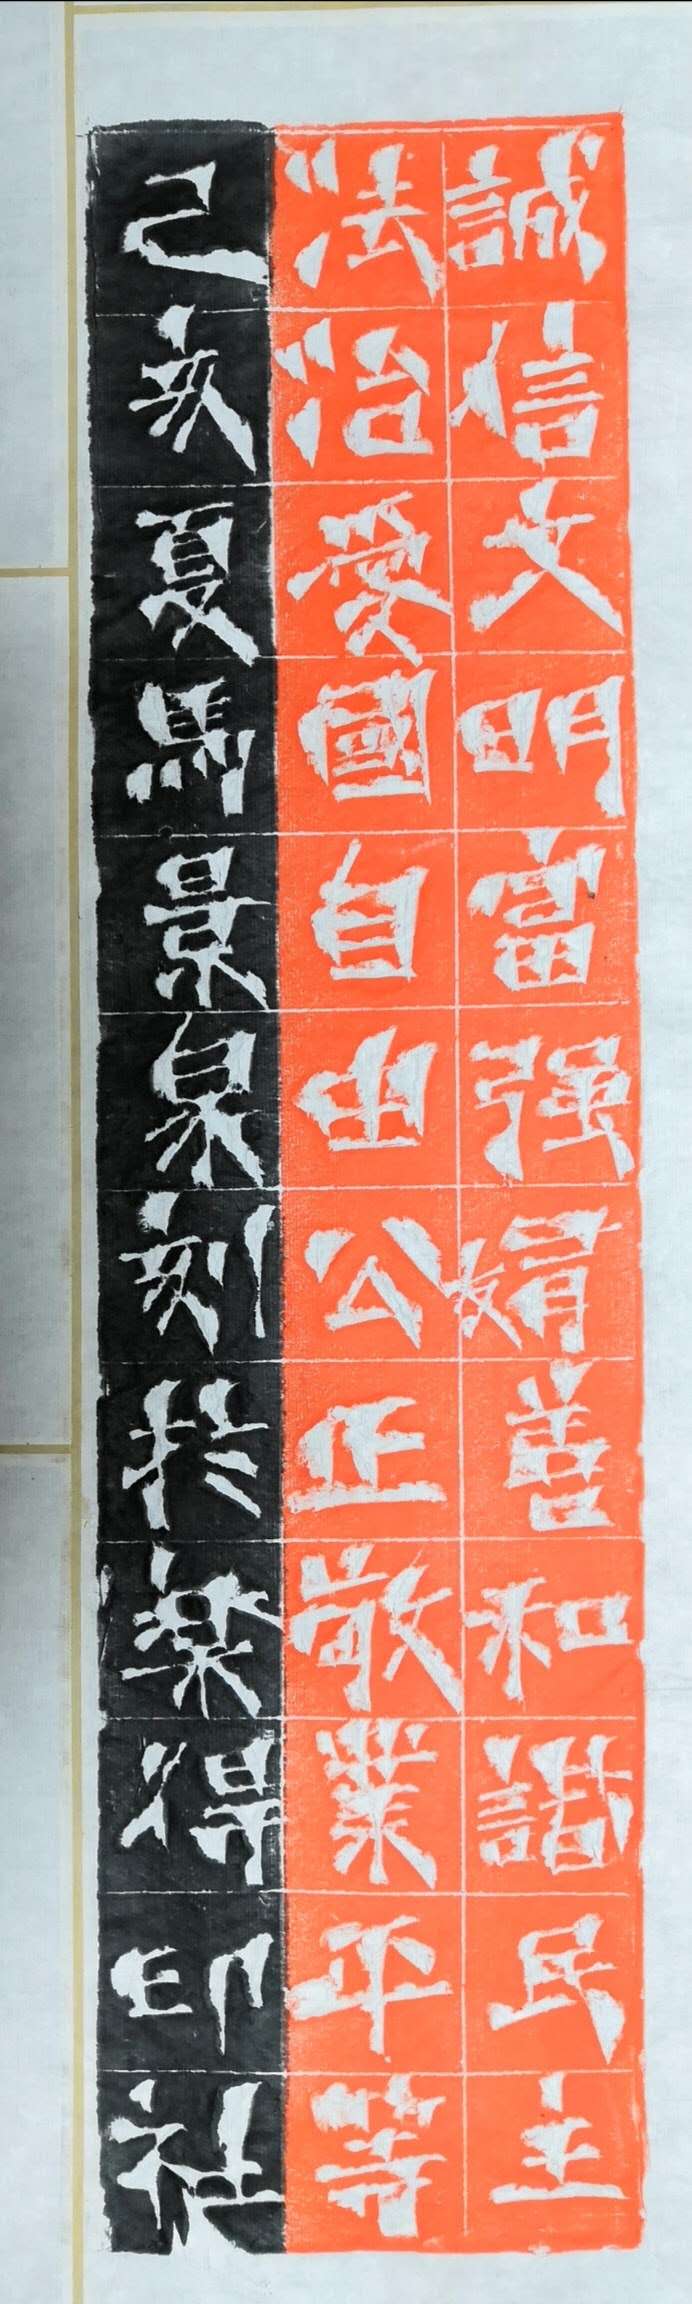 誠信文明富强友善和諧民主
法治愛國自由公正敬業平等
己亥夏馬景泉刻扵樂得印社